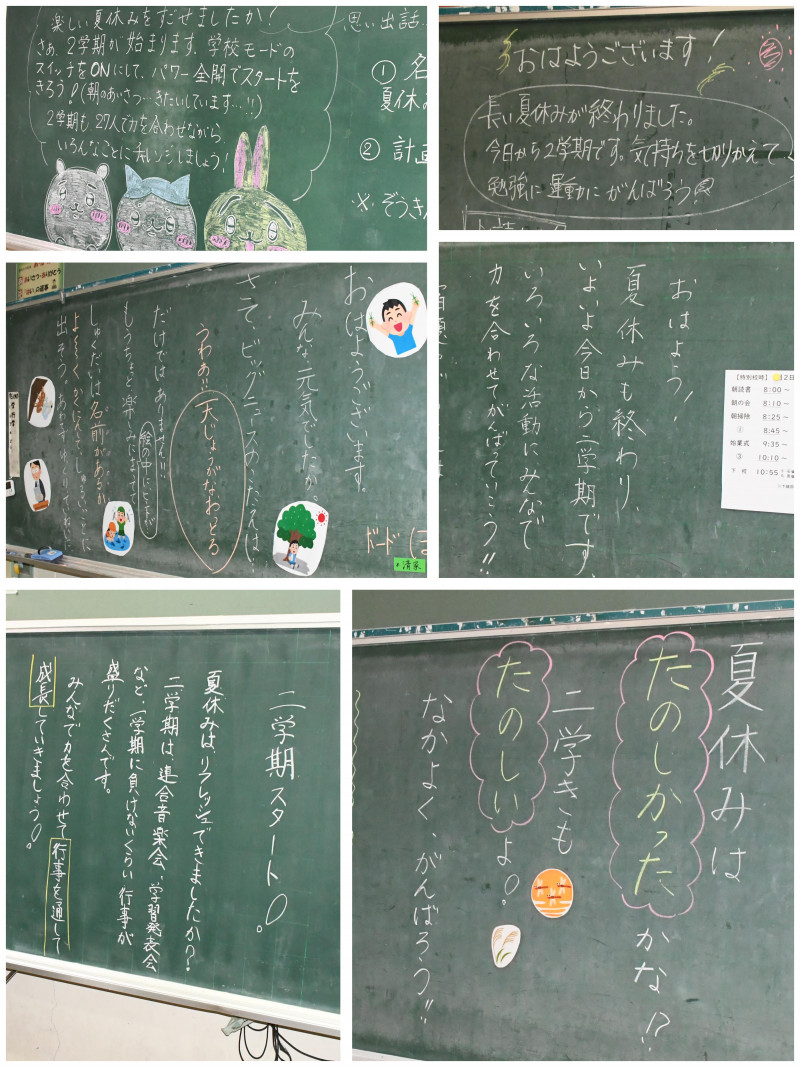 楽しい夏休みをすごせましたか！
さぁ、2学期が始まります。学校モードの
スイッチをONにして、パワー全開でスタートを
きろう！(朝のあいさつ…きたいしています…!!)
2学期も27人で力を合わせながら、
いろんなことにチャレンジしましょう！
思い出話…
① 名
夏休み
② 計画
※ぞうきん
おはようございます！
長い夏休みが終わりました。
今日から2学期です。気持ちを切りかえて
勉強に運動にがんばろう！
おはようございます。
みんな元気でしたか。
さて、ビッグニュースのこたえは…
うわぁ!!天じょうがなおってる
だけではありません!!
もうちょっと楽しみにまっててね
絵の中にヒントが
しゅくだいは名前があるか
ボード
清家
おはよう！
夏休みも終わり、
いよいよ今日から二学期です。
いろいろな活動にみんなで
力を合わせてがんばっていこう!!
【特別校時】
2日
朝読書 8:00～
朝の会 8:10～
朝掃除 8:25～
① 8:45～
始業式 9:35～
③ 10:10～
下校 10:55
二学期スタート！
夏休みは、リフレッシュできましたか？
二学期は、連合音楽会、学習発表会
など、一学期に負けないくらい行事が
盛りだくさんです。
みんなで力を合わせて行事を通して
成長していきましょう！
夏休みは
たのしかったかな!?
二学きも
たのしいよ！
なかよく、がんばろう!!